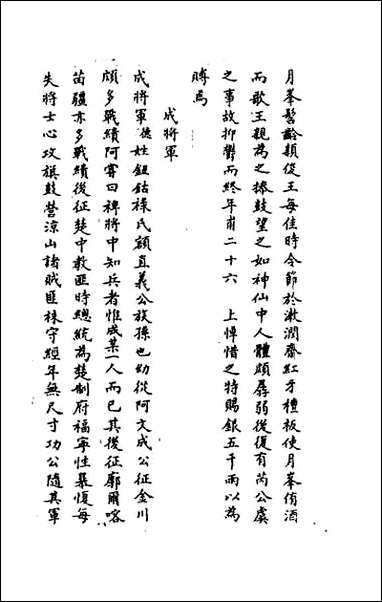 月峯髫齡頴俊王每佳時令節於漱潤齋紅牙檀板使月峯侑酒
而歌王親為之捧鼓望之如神仙中人體頗孱弱後復有芮公虞
之事故抑鬱而終年甫二十六　上悼惜之特賜銀五千兩以為
賻焉
成將軍
成將軍德姓鈕鈷祿氏顧直義公族孫也幼從阿文成公征金川
頗多戰績阿嘗曰裨將中知兵者惟成某一人而已其後征廓爾喀
苗疆亦多戰績後征楚中教匪時總統為楚制府福寧性暴愎每
失將士心攻旗鼓營涼山諸賊匪株守經年無尺寸功公隨其軍